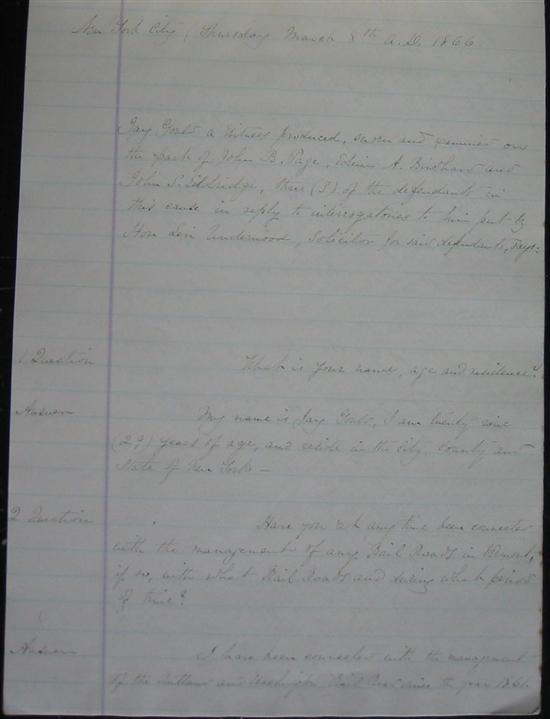 New York City, Thursday March 8th A.D. 1866.
Jay Gould a witness produced, sworn and examined on
the part of John B. Page, Edwin A. Birchard and
John S. Eldridge, three (3) of the defendants in
this cause in reply to interrogatories to him put by
Hon Levi Underwood, Solicitor for said defendants, says:
1 Question What is your name, age and residence?
Answer My name is Jay Gould, I am twenty nine
(29) years of age, and reside in the City, County and
State of New York—
2 Question Have you at any time been connected
with the management of any Rail Roads in Vermont,
if so, with what Rail Roads and during what period
of time?
Answer I have been connected with the management
of the Rutland and Washington Rail Road since the year 1861.